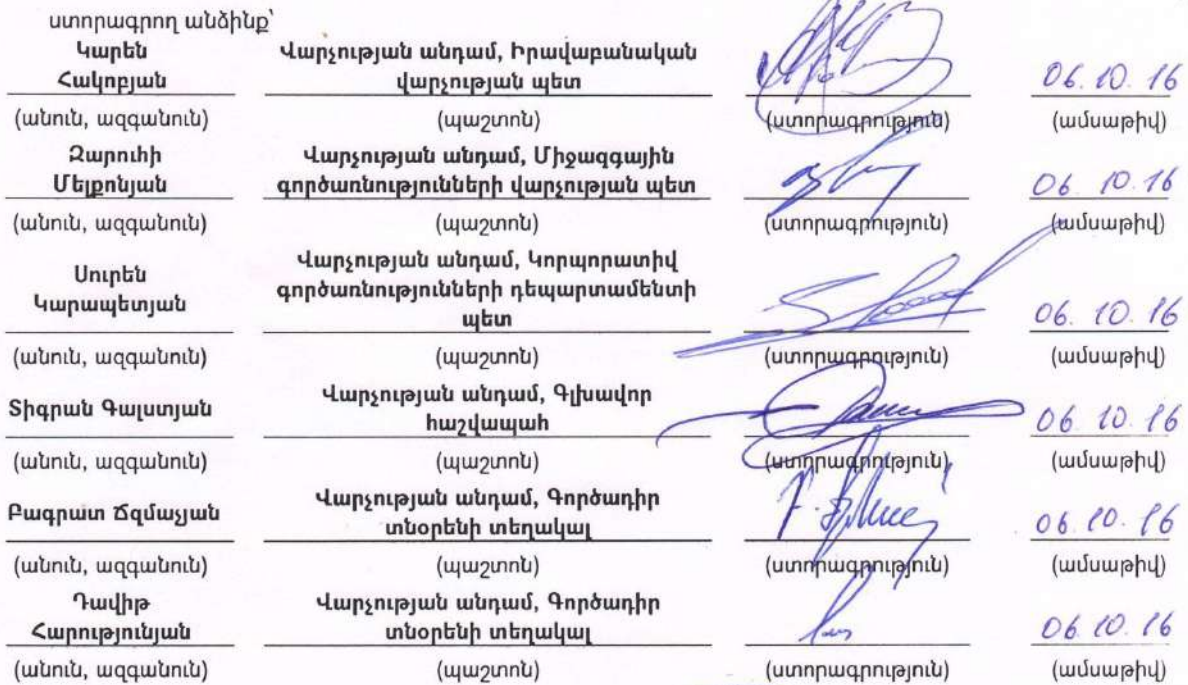 ստորագրող անձինք՝
Կարեն Վարչության անդամ, Իրավաբանական
Հակոբյան վարչության պետ 06.10.16
(անուն, ազգանուն) (պաշտոն) (ստորագրություն) (ամսաթիվ)
Զարուհի Վարչության անդամ, Միջազգային
Մելքոնյան գործառնությունների վարչության պետ 06.10.16
(անուն, ազգանուն) (պաշտոն) (ստորագրություն) (ամսաթիվ)
Սուրեն Վարչության անդամ, Կորպորատիվ
Կարապետյան գործառնությունների դեպարտամենտի
պետ 06.10.16
(անուն, ազգանուն) (պաշտոն) (ստորագրություն) (ամսաթիվ)
Տիգրան Գալստյան Վարչության անդամ, Գլխավոր
հաշվապահ 06.10.16
(անուն, ազգանուն) (պաշտոն) (ստորագրություն) (ամսաթիվ)
Բագրատ Ճզմաչյան Վարչության անդամ, Գործադիր
տնօրենի տեղակալ 06.10.16
(անուն, ազգանուն) (պաշտոն) (ստորագրություն) (ամսաթիվ)
Դավիթ Վարչության անդամ, Գործադիր
Հարությունյան տնօրենի տեղակալ 06.10.16
(անուն, ազգանուն) (պաշտոն) (ստորագրություն) (ամսաթիվ)